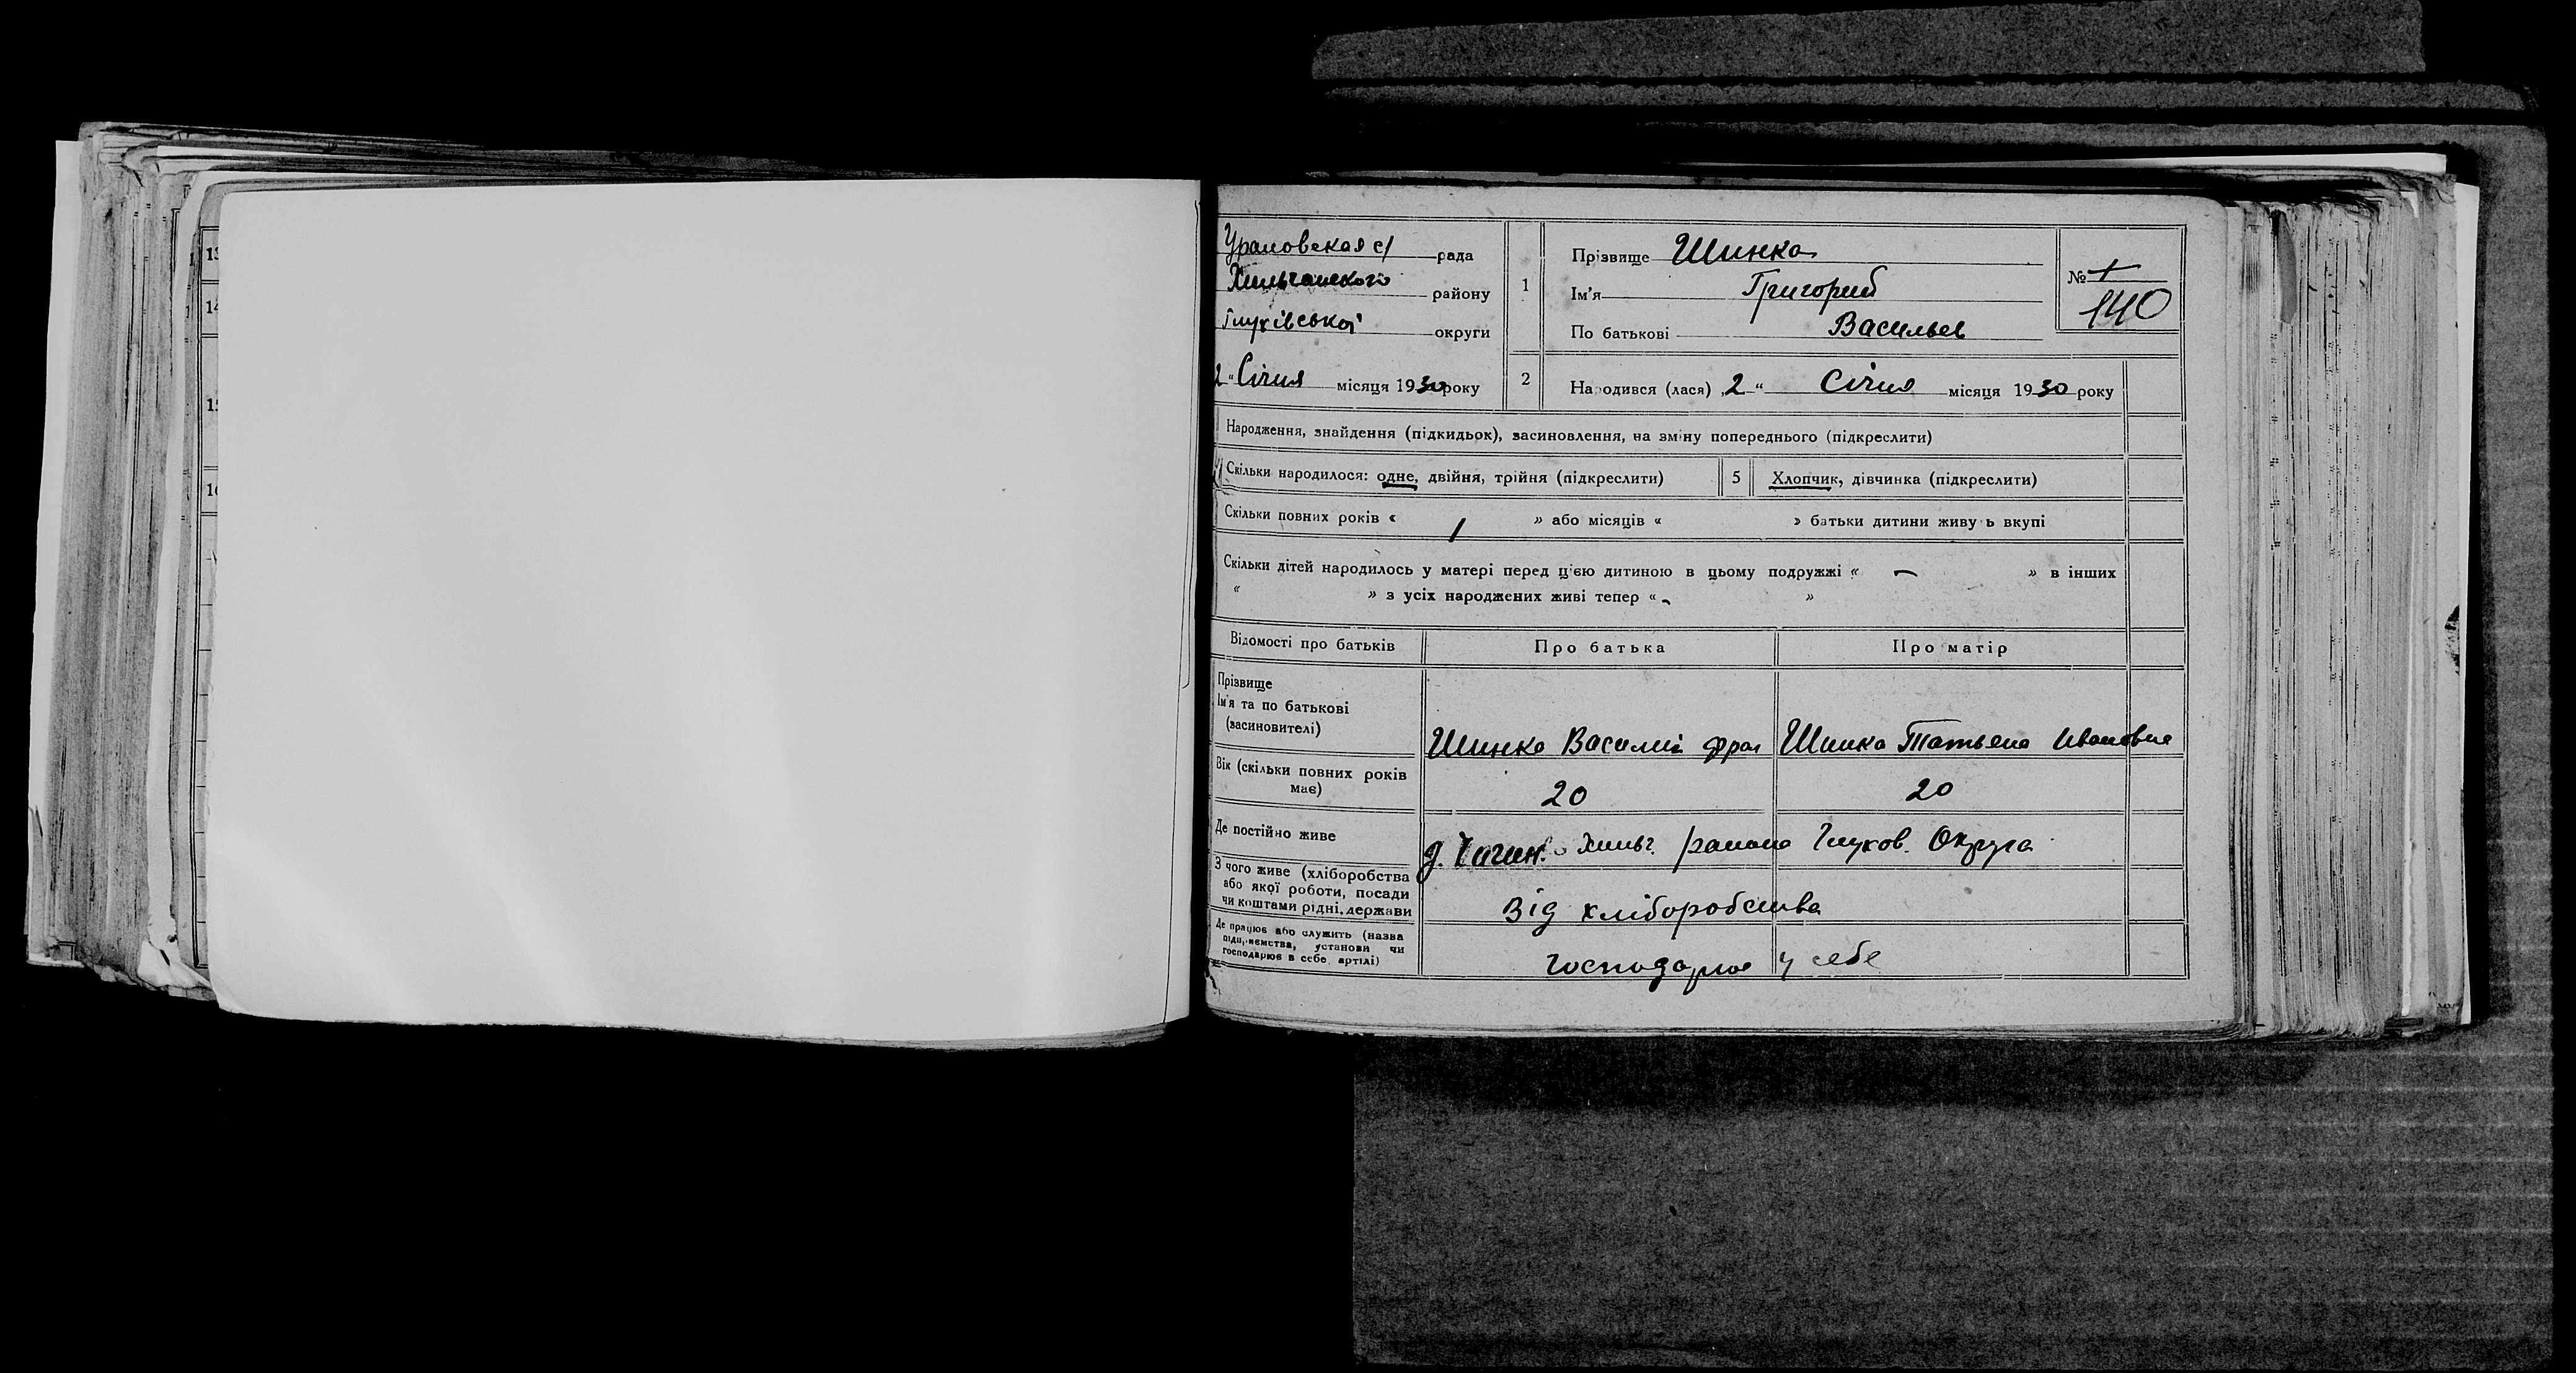 13
14
15
16
Ураловская с/ рада
Хильчанского району
Глухівської округи
2 " Січня місяця 1930 року
1
Прізвище Шинка
Ім'я Григорий
По батькові Васильев
№ 1
140
2
Народився (лася) „2 " Січня місяця 1930 року
Народження, знайдення (підкидьок), засиновлення, на зміну попереднього (підкреслити)
4 Скільки народилося: одне, двійня, трійня (підкреслити)
5 Хлопчик, дівчинка (підкреслити)
Скільки повних років « / » або місяців « » батьки дитини живуть вкупі
Скільки дітей народилось у матері перед цією дитиною в цьому подружжі « — » в інших
« » з усіх народжених живі тепер « - »
Відомості про батьків
Про батька
Про матір
Прізвище
Ім'я та по батькові
(засиновителі)
Шинка Василий
Шинка Татьяна Ивановна
Вік (скільки повних років
має)
20
20
Де постійно живе
Хильч. района Глухов. Округа
З чого живе (хліборобства
або якої роботи, посади
чи коштами рідні, держави
Від хліборобства
Де працює або служить (назва
підприємства, установи чи
господарює в себе, артілі)
Господарює у себе